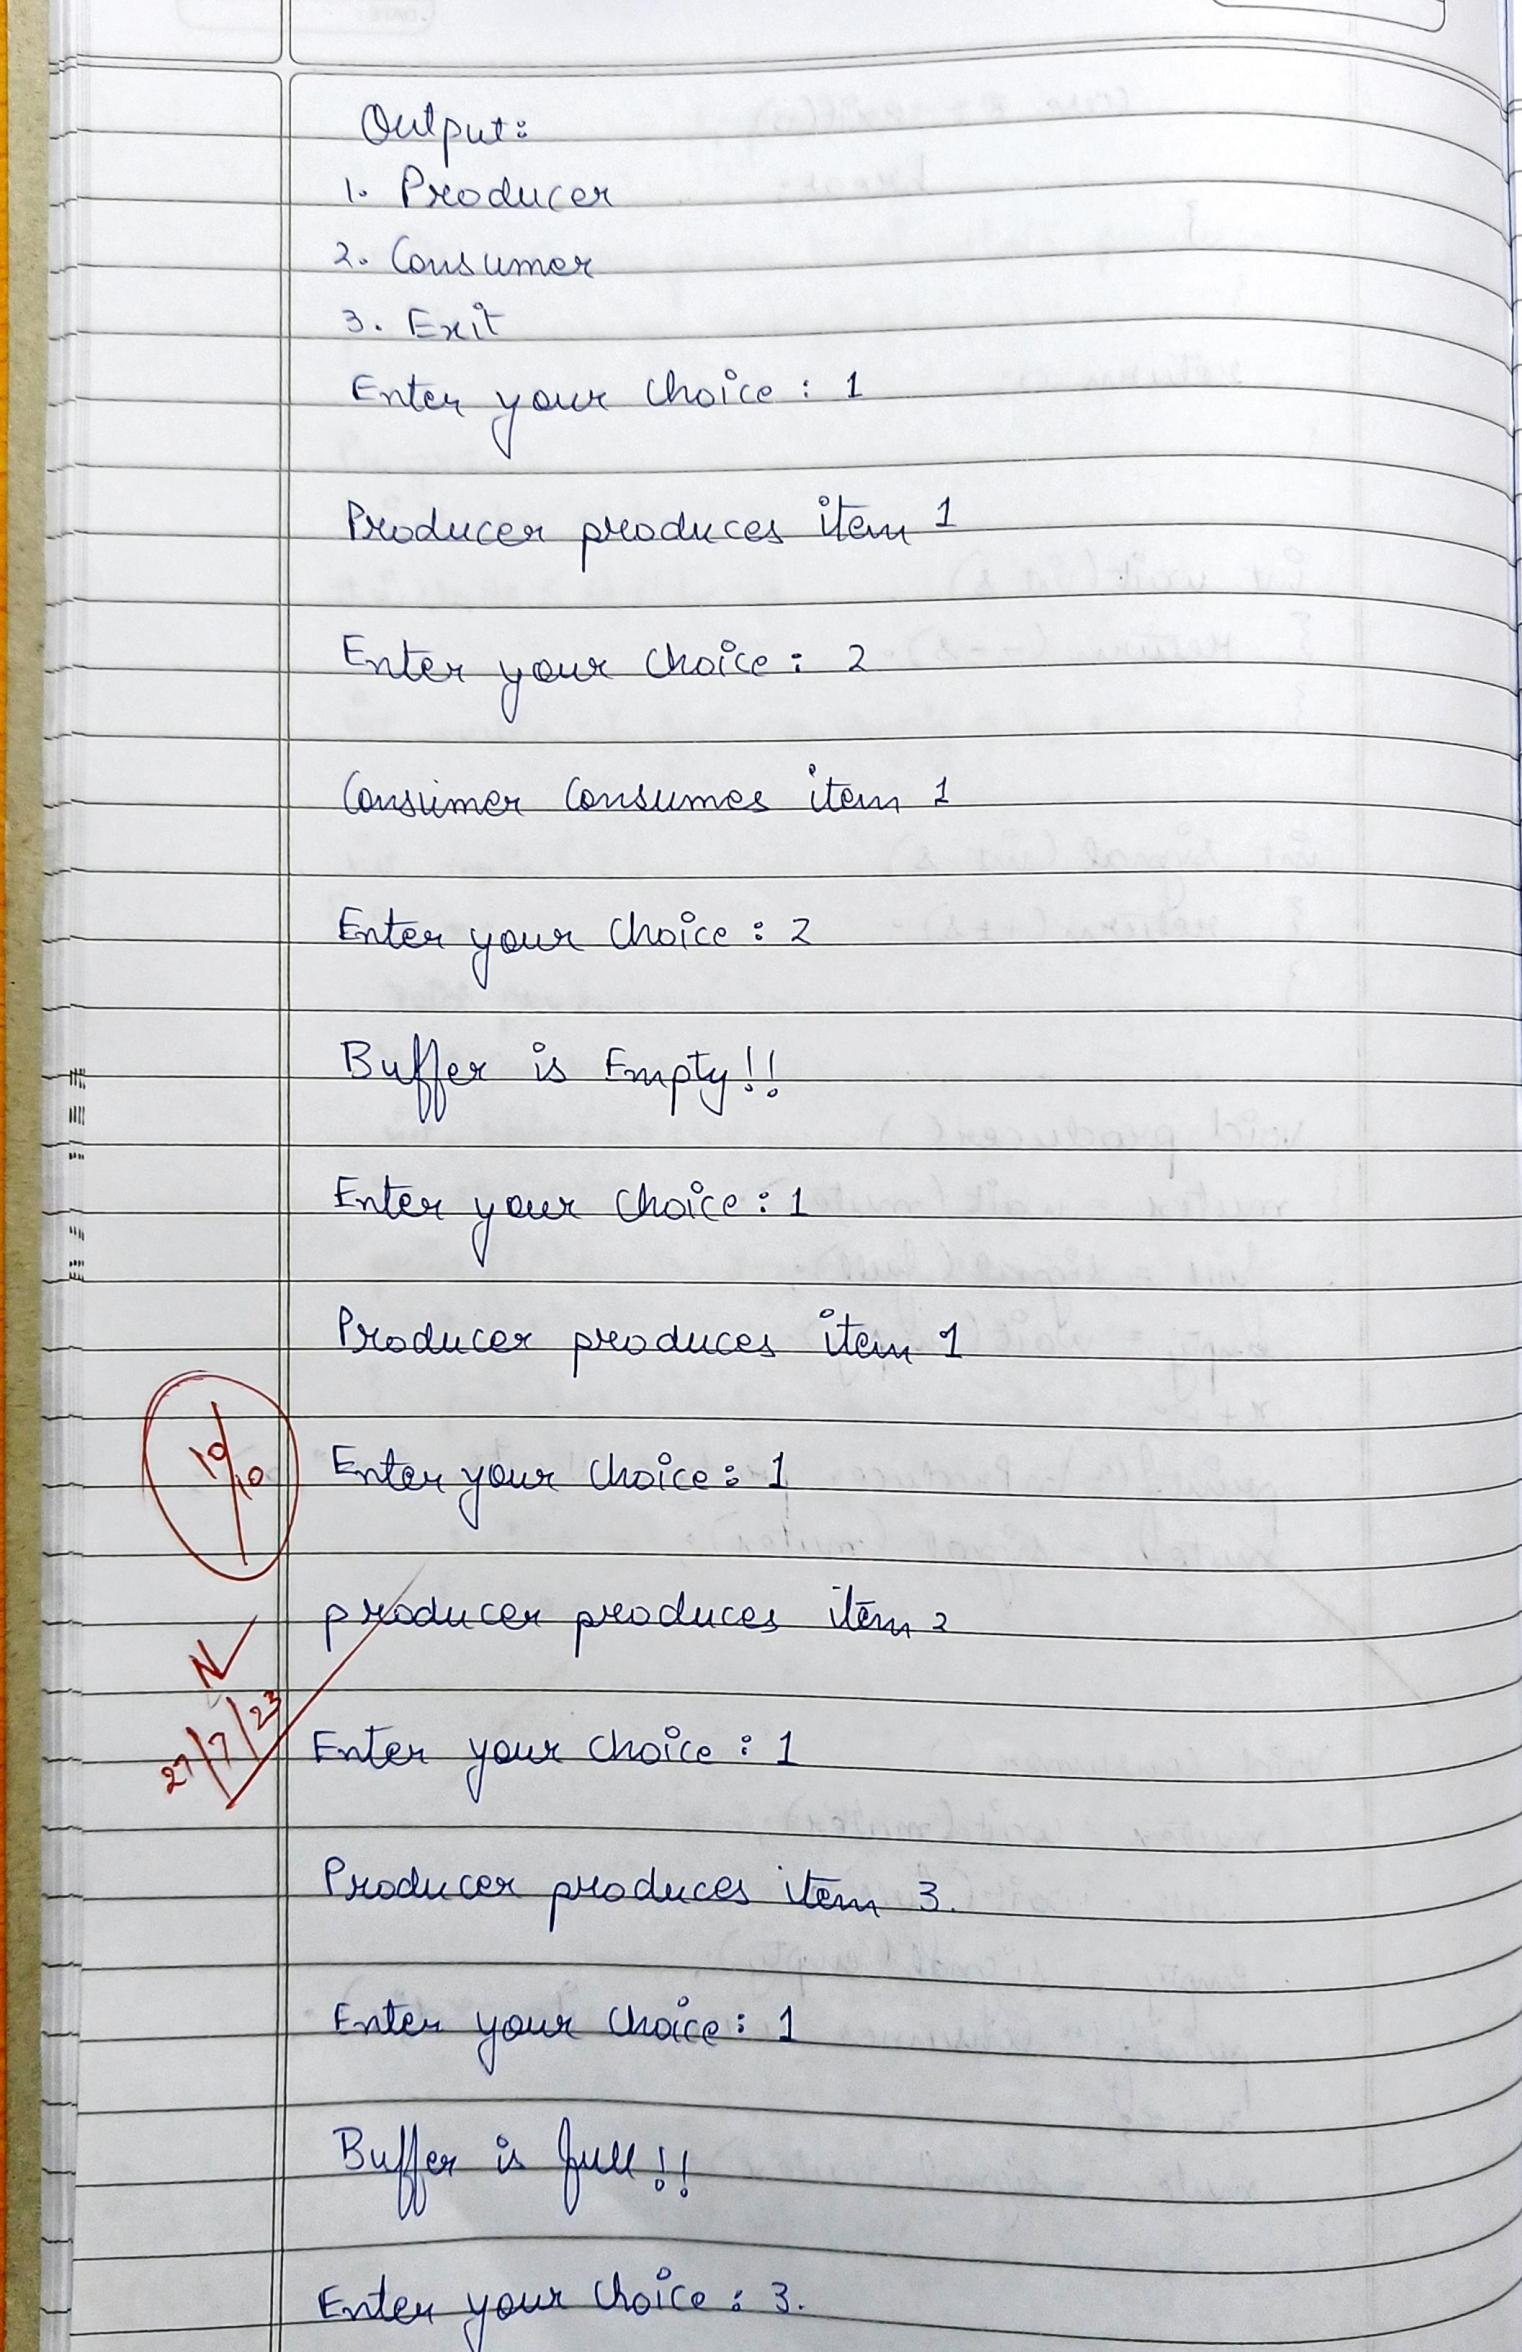 Output:
1. Producer
2. Consumer
3. Exit
Enter your choice : 1
Producer produces item 1
Enter your choice : 2
Consumer consumes item 1
Enter your choice : 2
Buffer is Empty!!
Enter your choice : 1
Producer produces item 1
10/10
Enter your choice : 1
producer produces item 2
N
27/7/23
Enter your choice : 1
Producer produces item 3.
Enter your choice : 1
Buffer is full!!
Enter your choice : 3.